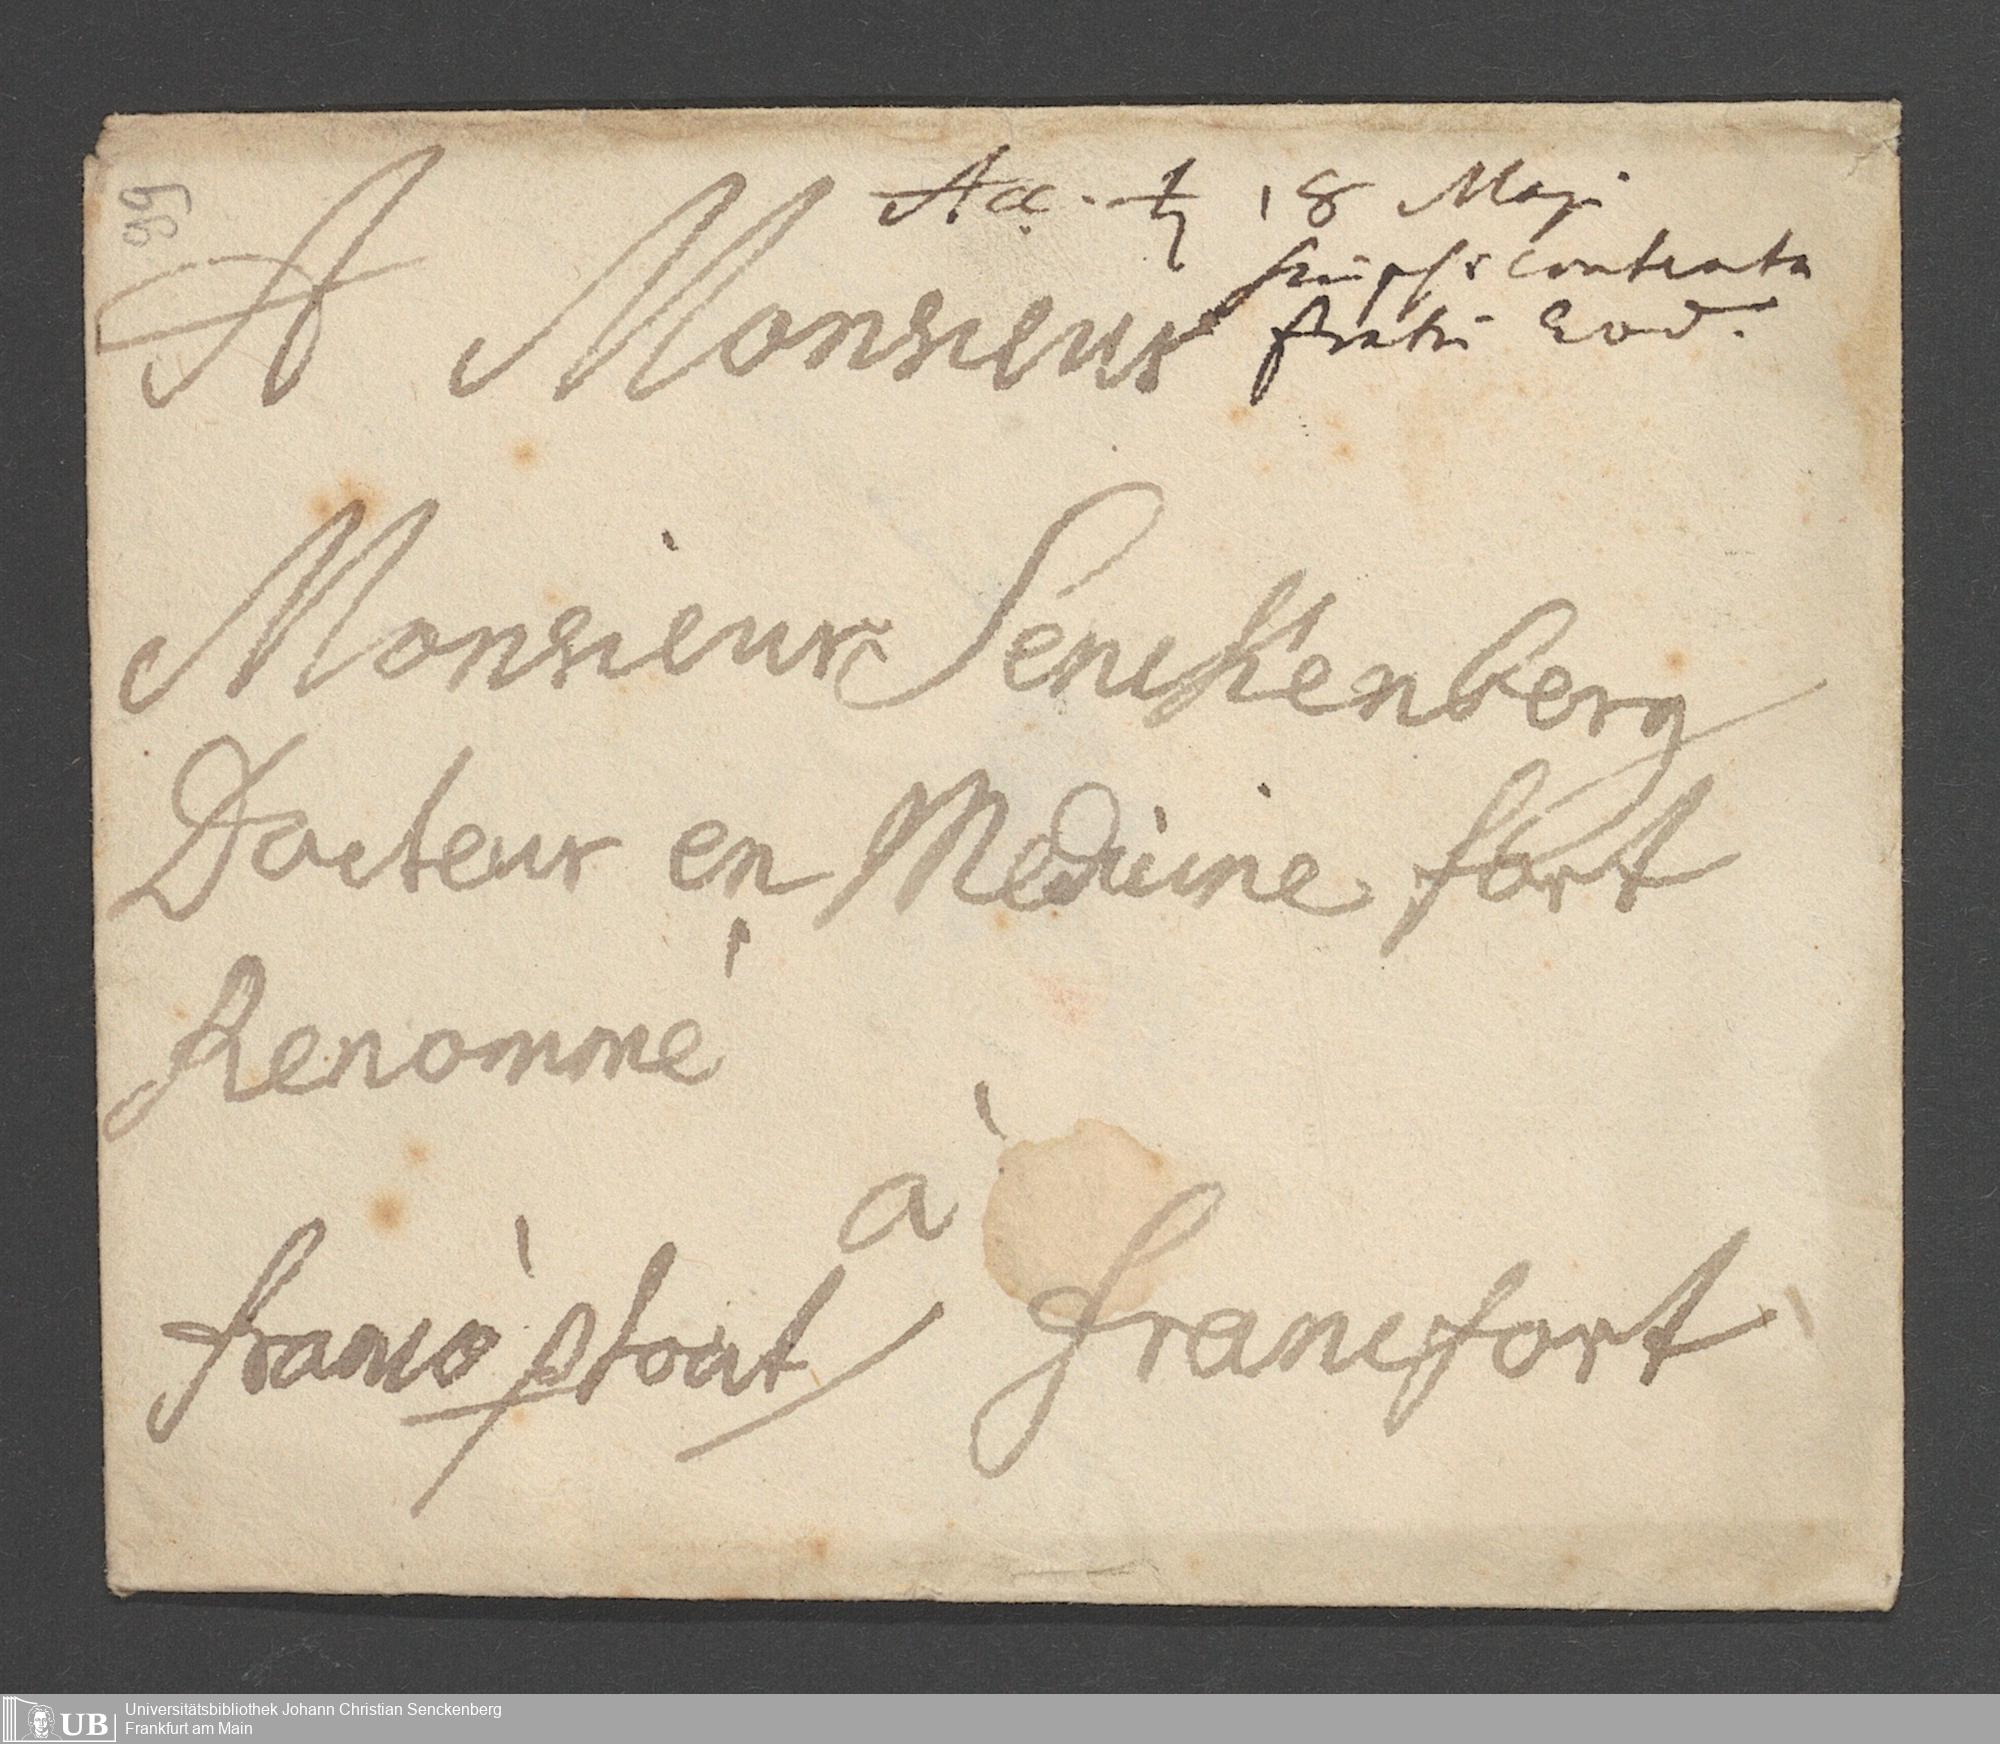 99
Acc. ♄ 18 Maji
scripsi contenta
fratri eod.
A Monsieur
Monsieur Senckenberg
Docteur en Medicine fort
Renommé
à
franco tout Francfort
UB
Universitätsbibliothek Johann Christian Senckenberg
Frankfurt am Main